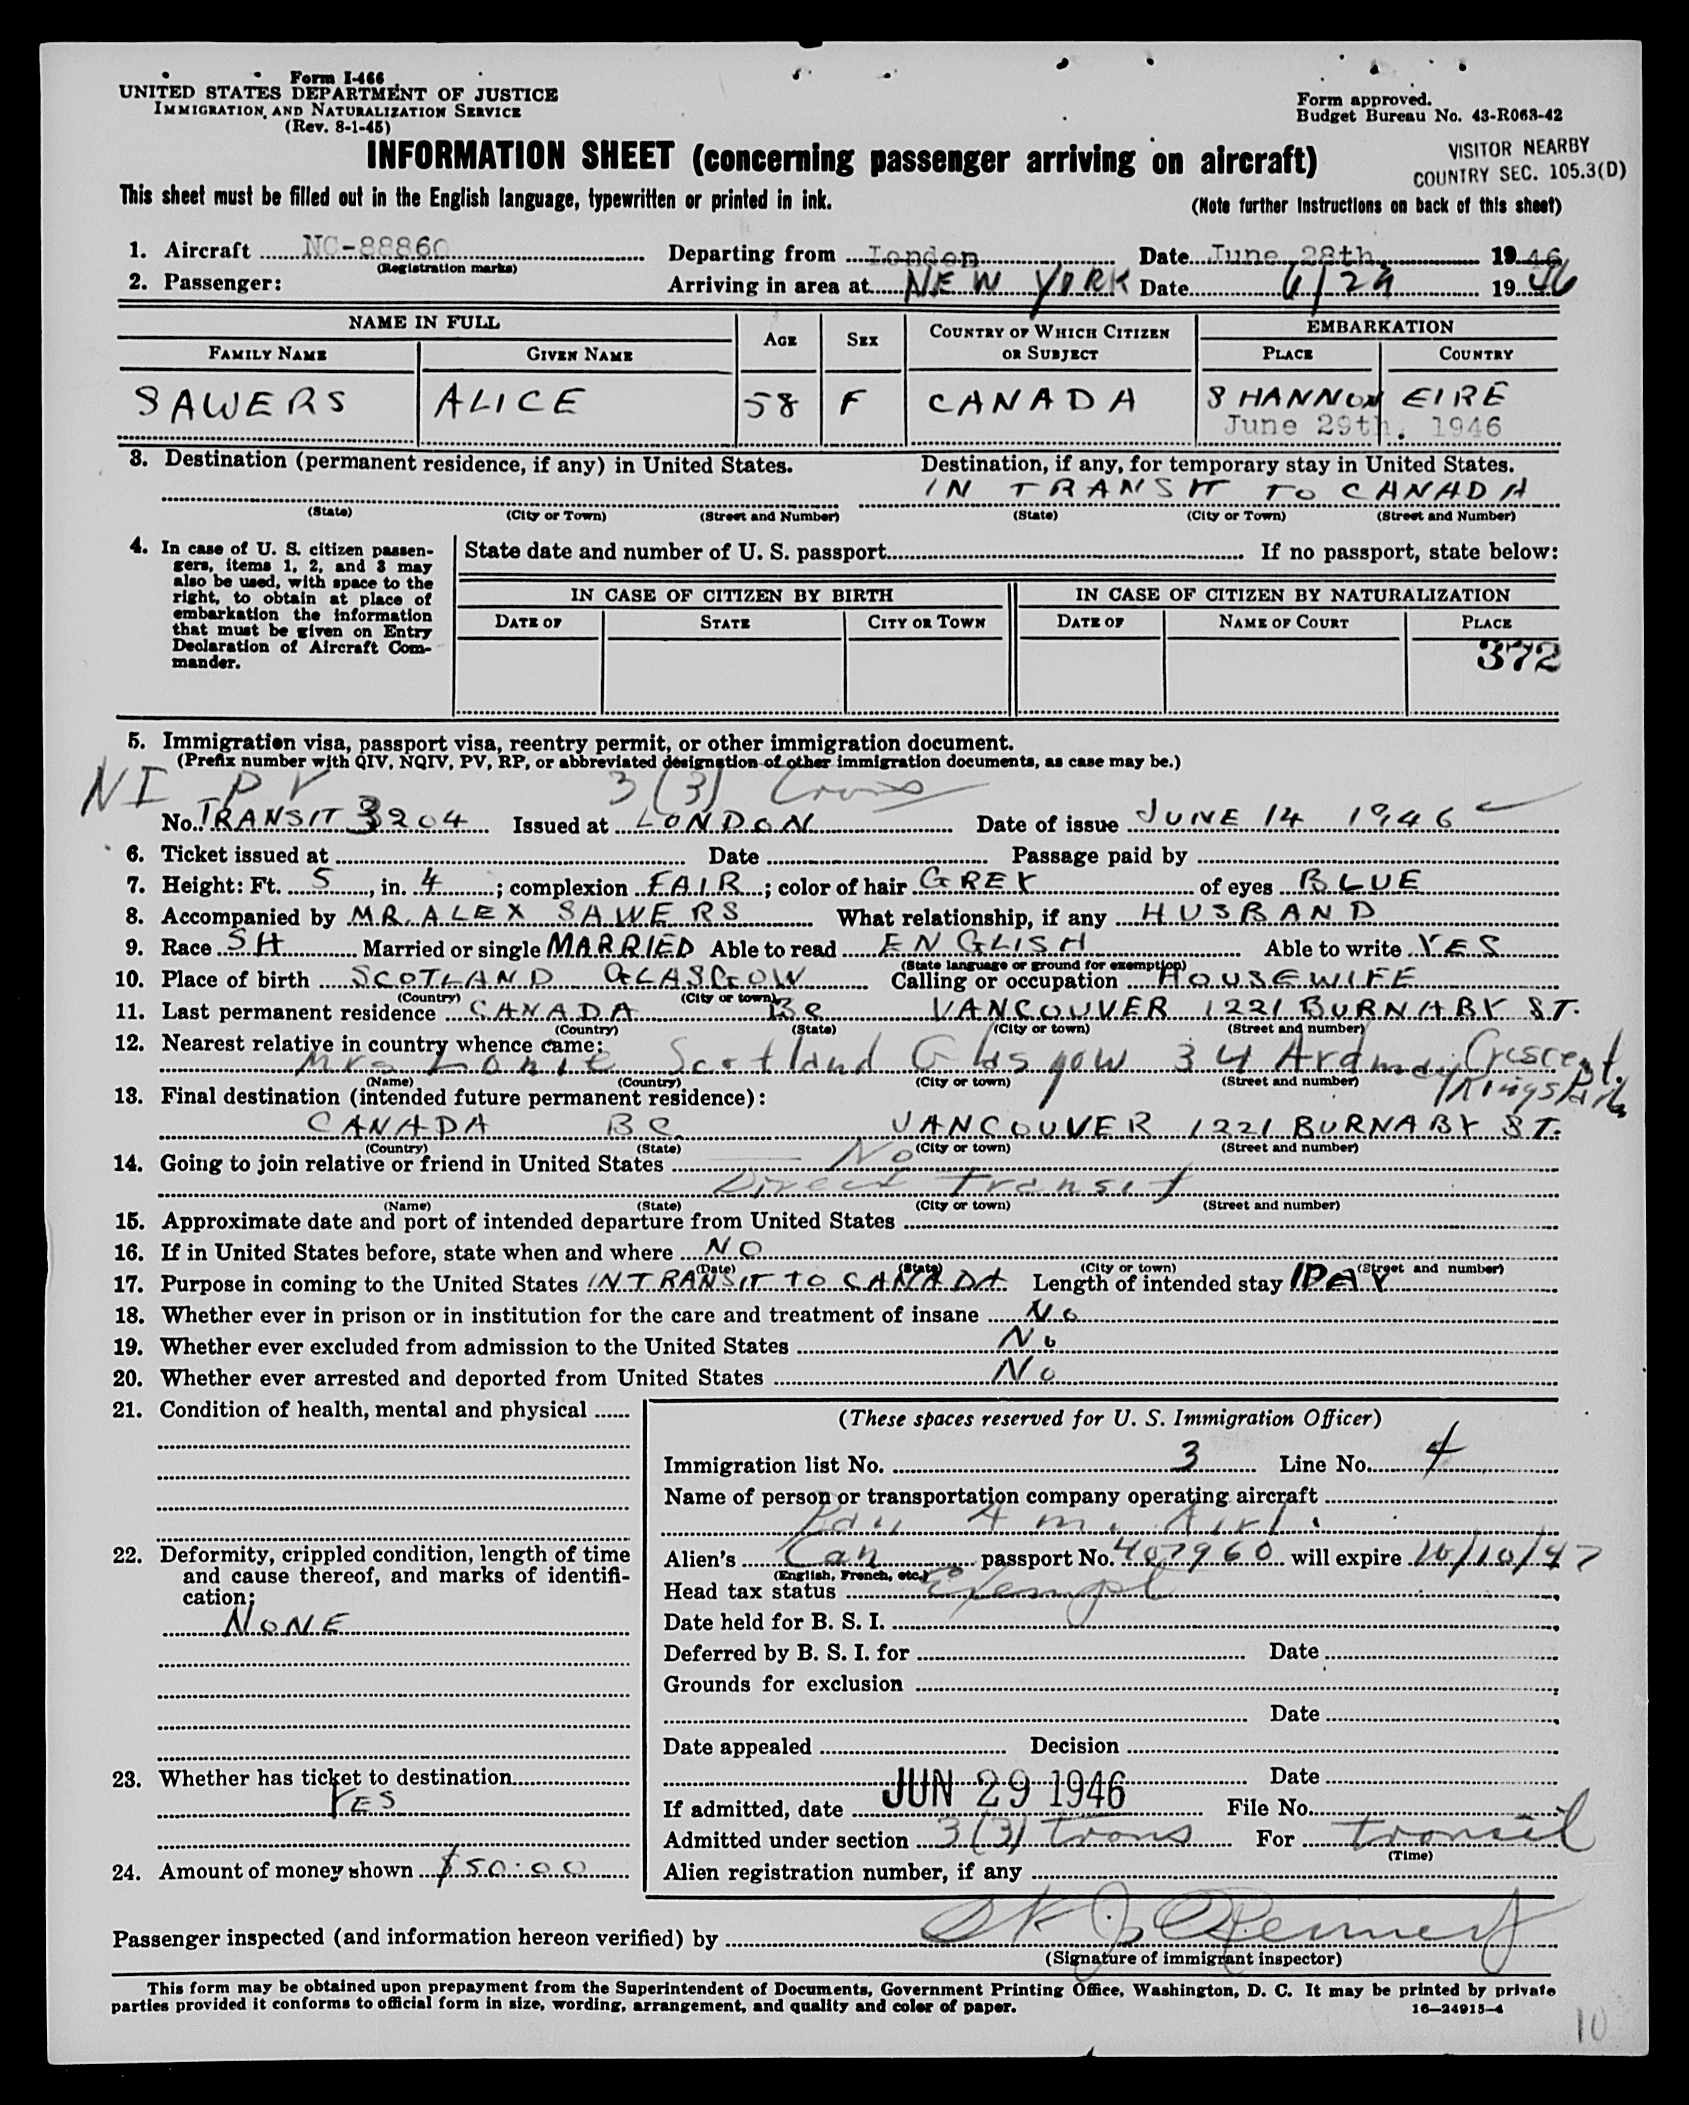 Form I-466
UNITED STATES DEPARTMENT OF JUSTICE
IMMIGRATION AND NATURALIZATION SERVICE
(Rev. 8-1-45)
Form approved.
Budget Bureau No. 43-R063-42
INFORMATION SHEET (concerning passenger arriving on aircraft)
VISITOR NEARBY
COUNTRY SEC. 105.3(D)
This sheet must be filled out in the English language, typewritten or printed in ink.
(Note further instructions on back of this sheet)
1. Aircraft NC-88860 Departing from London Date June 28th, 1946
(Registration marks)
2. Passenger: Arriving in area at NEW YORK Date 6/29 1946
NAME IN FULL AGE SEX COUNTRY OF WHICH CITIZEN OR SUBJECT EMBARKATION
FAMILY NAME GIVEN NAME PLACE COUNTRY
SAWERS ALICE 58 F CANADA SHANNON EIRE
June 29th, 1946
3. Destination (permanent residence, if any) in United States. Destination, if any, for temporary stay in United States.
IN TRANSIT TO CANADA
(State) (City or Town) (Street and Number) (State) (City or Town) (Street and Number)
4. In case of U. S. citizen passengers, items 1, 2, and 3 may also be used, with space to the right, to obtain at place of embarkation the information that must be given on Entry Declaration of Aircraft Commander.
State date and number of U. S. passport If no passport, state below:
IN CASE OF CITIZEN BY BIRTH IN CASE OF CITIZEN BY NATURALIZATION
DATE OF STATE CITY OR TOWN DATE OF NAME OF COURT PLACE
372
5. Immigration visa, passport visa, reentry permit, or other immigration document.
(Prefix number with QIV, NQIV, PV, RP, or abbreviated designation of other immigration documents, as case may be.)
NI PV 3(3)
No. TRANSIT 3204 Issued at LONDON Date of issue JUNE 14 1946
6. Ticket issued at Date Passage paid by
7. Height: Ft. 5, in. 4; complexion FAIR; color of hair GREY of eyes BLUE
8. Accompanied by MR. ALEX SAWERS What relationship, if any HUSBAND
9. Race SH Married or single MARRIED Able to read ENGLISH Able to write YES
(State language or ground for exemption)
10. Place of birth SCOTLAND GLASGOW Calling or occupation HOUSEWIFE
(Country) (City or town)
11. Last permanent residence CANADA BC VANCOUVER 1221 BURNABY ST.
(Country) (State) (City or town) (Street and number)
12. Nearest relative in country whence came:
Mrs Scotland Glasgow 34 Crescent
(Name) (Country) (City or town) (Street and number)
13. Final destination (intended future permanent residence): Kings Park
CANADA BC VANCOUVER 1221 BURNABY ST.
(Country) (State) (City or town) (Street and number)
14. Going to join relative or friend in United States No
Direct Transit
(Name) (State) (City or town) (Street and number)
15. Approximate date and port of intended departure from United States
16. If in United States before, state when and where NO
(Date) (State) (City or town) (Street and number)
17. Purpose in coming to the United States IN TRANSIT TO CANADA Length of intended stay 1 DAY
18. Whether ever in prison or in institution for the care and treatment of insane No
19. Whether ever excluded from admission to the United States No
20. Whether ever arrested and deported from United States No
21. Condition of health, mental and physical
22. Deformity, crippled condition, length of time and cause thereof, and marks of identification:
NONE
23. Whether has ticket to destination
YES
24. Amount of money shown $50.00
(These spaces reserved for U. S. Immigration Officer)
Immigration list No. 3 Line No. 4
Name of person or transportation company operating aircraft
Pan Am. Airl.
Alien's Can passport No. 407960 will expire 10/10/47
(English, French, etc.)
Head tax status Exempt
Date held for B. S. I.
Deferred by B. S. I. for Date
Grounds for exclusion
Date
Date appealed Decision
Date
If admitted, date JUN 29 1946 File No.
Admitted under section 3(3) trans For transit
(Time)
Alien registration number, if any
Passenger inspected (and information hereon verified) by
(Signature of immigrant inspector)
This form may be obtained upon prepayment from the Superintendent of Documents, Government Printing Office, Washington, D. C. It may be printed by private
parties provided it conforms to official form in size, wording, arrangement, and quality and color of paper.
16—24915-4
10